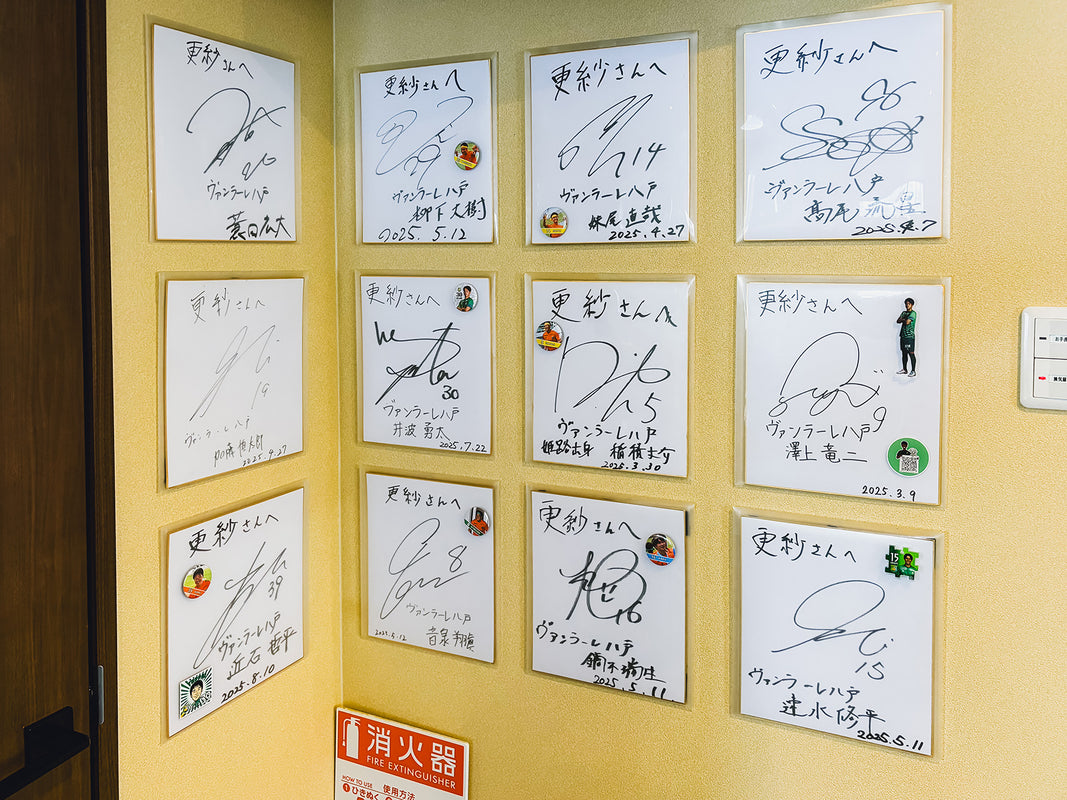 更紗さんへ
26
ヴァンラーレ八戸
蓑田広大
更紗さんへ
ヴァンラーレ八戸
柳下大樹
2025. 5. 12
更紗さんへ
14
ヴァンラーレ八戸
妹尾直哉
2025. 4. 27
更紗さんへ
ヴァンラーレ八戸
高尾流星
更紗さんへ
19
ヴァンラーレ八戸
加藤慎太郎
2025. 4. 27
更紗さんへ
30
ヴァンラーレ八戸
井波勇太
2025. 7. 22
更紗さんへ
5
ヴァンラーレ八戸
姫路出身 稲積圭介
2025. 3. 30
更紗さんへ
9
ヴァンラーレ八戸
澤上竜二
2025. 3. 9
更紗さんへ
39
ヴァンラーレ八戸
近石哲平
2025. 8. 10
更紗さんへ
8
ヴァンラーレ八戸
音泉翔眞
2025. 5. 12
更紗さんへ
16
ヴァンラーレ八戸
鏑木瑞生
2025. 5. 11
更紗さんへ
15
15
ヴァンラーレ八戸
速水修平
2025. 5. 11
消火器
FIRE EXTINGUISHER
HOW TO USE 使用方法
1 ひきぬく